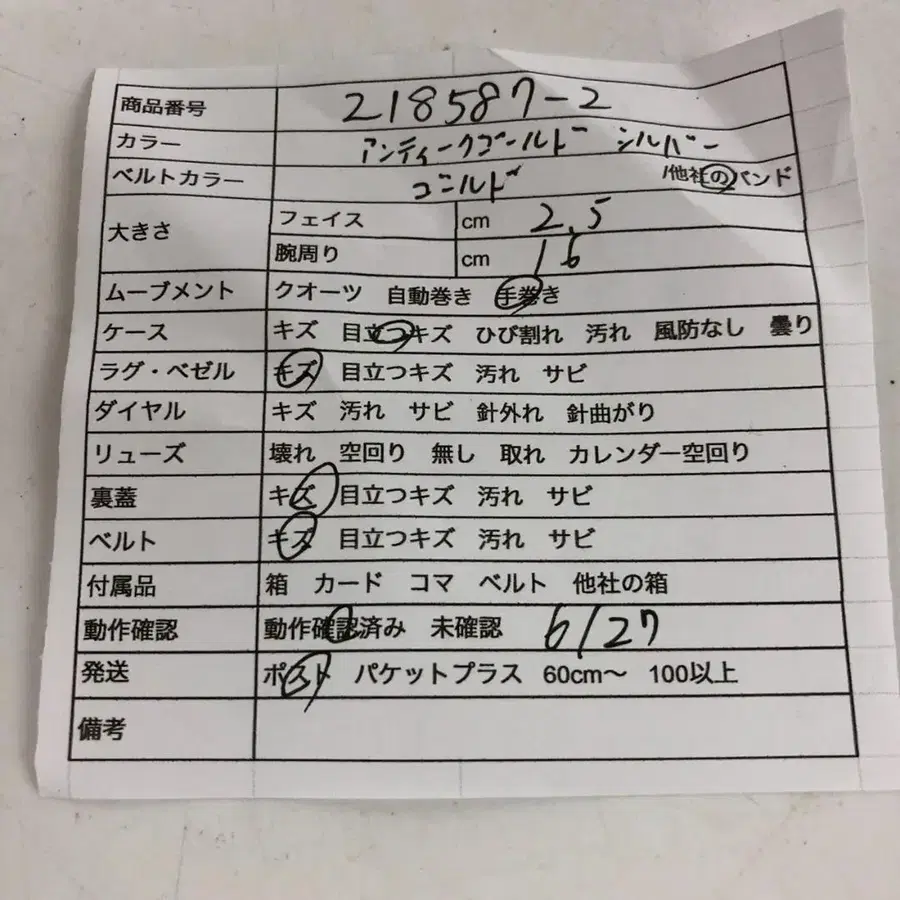 商品番号 218587-2
カラー アンティークゴールド シルバー
ベルトカラー ゴールド /他社のバンド
大きさ フェイス cm 2.5
腕周り cm 16
ムーブメント クオーツ 自動巻き 手巻き
ケース キズ 目立つキズ ひび割れ 汚れ 風防なし 曇り
ラグ・ベゼル キズ 目立つキズ 汚れ サビ
ダイヤル キズ 汚れ サビ 針外れ 針曲がり
リューズ 壊れ 空回り 無し 取れ カレンダー空回り
裏蓋 キズ 目立つキズ 汚れ サビ
ベルト キズ 目立つキズ 汚れ サビ
付属品 箱 カード コマ ベルト 他社の箱
動作確認 動作確認済み 未確認 6/27
発送 ポスト パケットプラス 60cm〜 100以上
備考